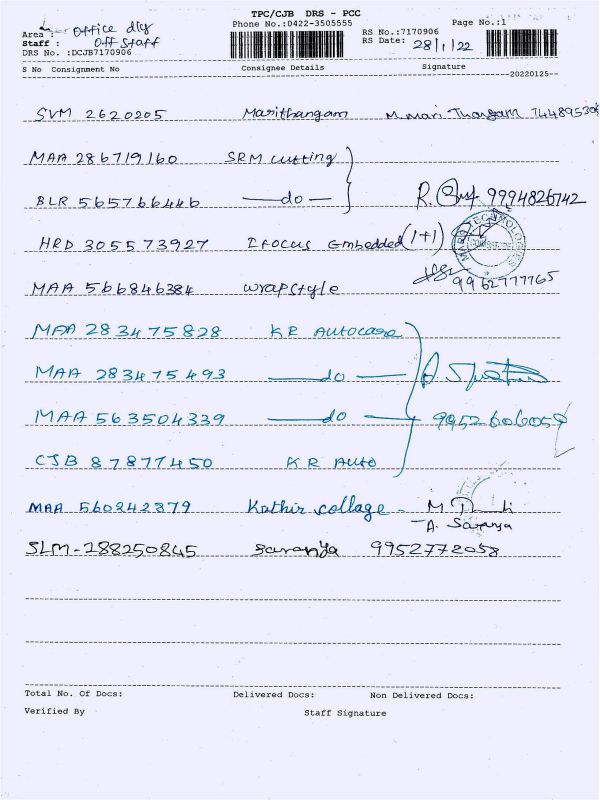 TPC/CJB DRS - PCC
Phone No.:0422-3505555
Page No.:1
Area : Office dly
Staff : Off Staff
DRS No. :DCJB7170906
RS No.:7170906
RS Date: 28/1/22
S No Consignment No Consignee Details Signature
20220125
SVM 2620205 Marithangam M. Mari Thangam
MAA 286719160 SRM Cutting
BLR 565766446 -do- R. 9994826742
HRD 305573927 Ifocus Embedded (1+1)
MAA 566846384 Wrapstyle 9962777765
MAA 283475828 KR Autocare
MAA 283475493 -do-
MAA 563504339 -do- 9952606059
CJB 87877450 KR Auto
MAA 560242379 Kathir Collage - M
A. Saranya
SLM-288250845 Saranya 9952772058
Total No. Of Docs: Delivered Docs: Non Delivered Docs:
Verified By Staff Signature